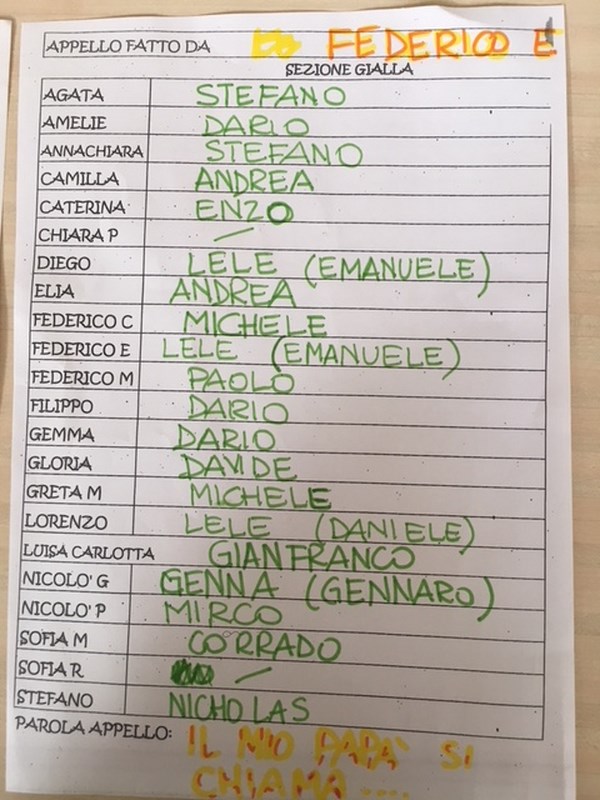 APPELLO FATTO DA FEDERICO E
SEZIONE GIALLA
AGATA STEFANO
AMELIE DARIO
ANNACHIARA STEFANO
CAMILLA ANDREA
CATERINA ENZO
CHIARA P —
DIEGO LELE (EMANUELE)
ELIA ANDREA
FEDERICO C MICHELE
FEDERICO E LELE (EMANUELE)
FEDERICO M PAOLO
FILIPPO DARIO
GEMMA DARIO
GLORIA DAVIDE
GRETA M MICHELE
LORENZO LELE (DANIELE)
LUISA CARLOTTA GIANFRANCO
NICOLO' G GENNA (GENNARO)
NICOLO' P MIRCO
SOFIA M CORRADO
SOFIA R —
STEFANO NICHOLAS
PAROLA APPELLO: IL MIO PAPA' SI
CHIAMA ....